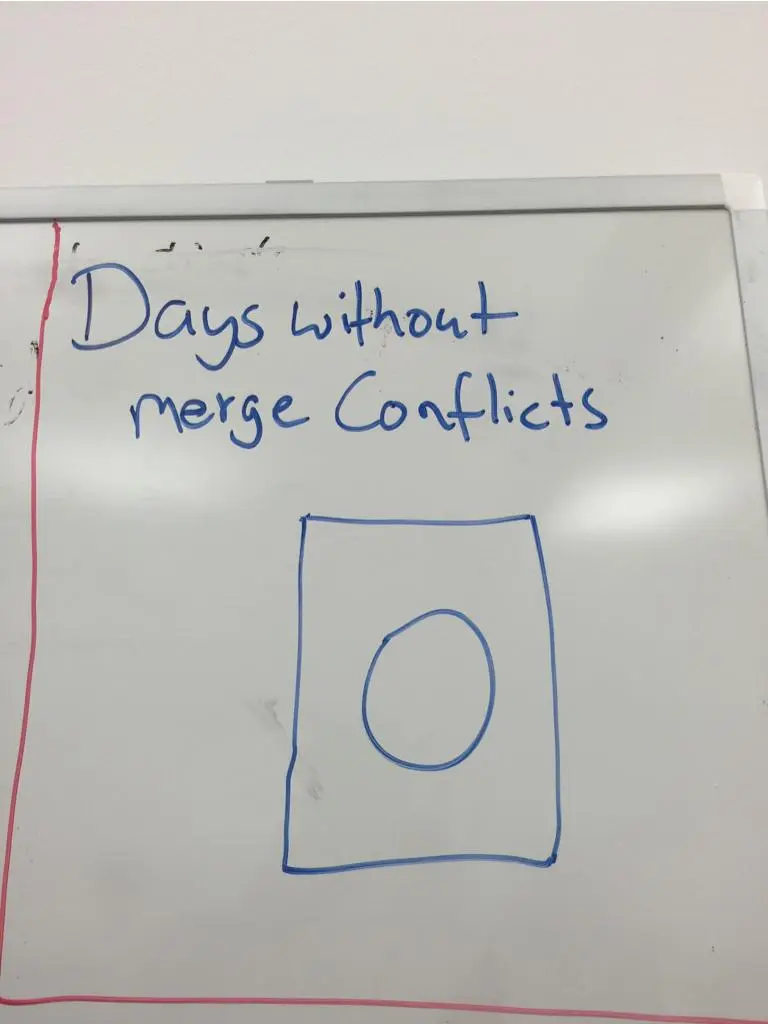 Days without
merge Conflicts
0